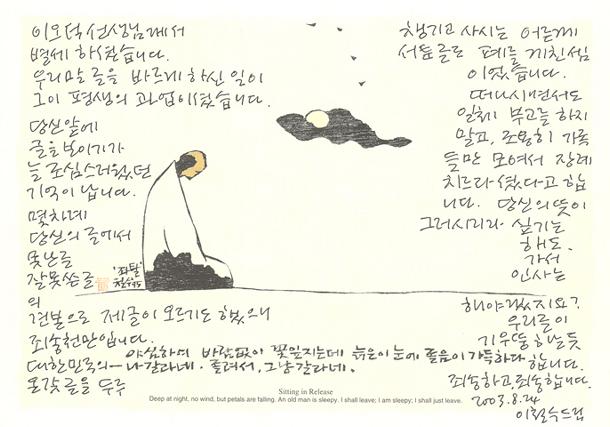 이오덕선생님께서
별세 하셨습니다.
우리말 글을 바르게 하신 일이
그이 평생의 과업이셨습니다.
당신앞에
글을 보이기가
늘 조심스러웠던
기억이 납니다.
몇차례
당신의 글에서
못난글
잘못쓴글
의
견본으로 제글이 오르기도 했으매
죄송천만입니다.
대한민국의
온갖글을 두루
챙기고 사시는 어른께
서툰글로 폐를 끼친셈
이었습니다.
떠나시면서도
일체 부고를 하지
말고, 조용히 가족
들만 모여서 장례
치르라셨다고 합
니다. 당신의 뜻이
그러시리라 싶기는
해도,
가서
인사는
해야겠지요?
우리들이
기우뚱하는듯
합니다.
죄송하고, 죄송합니다.
2003.8.24
이철수드림
'좌탈'
철수95
야심하여 바람없이 꽃잎지는데 늙은이 눈에 졸음이 가득하다
—나갈라네. 졸려서, 그냥갈라네.
Sitting in Release
Deep at night, no wind, but petals are falling. An old man is sleepy. I shall leave; I am sleepy; I shall just leave.